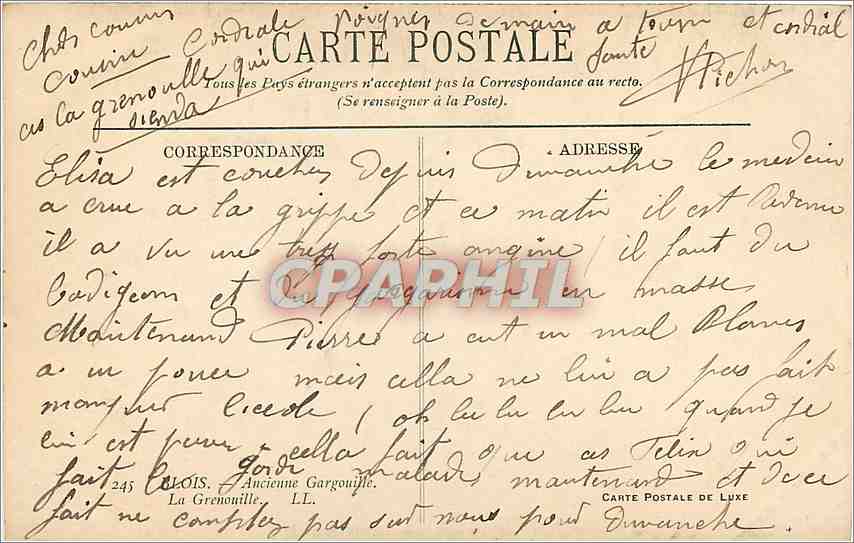 Chers cousins
cousine Cordiale poignee de main a tous et cordial
santé
as la grenouille qui
viendra
VPichon
CARTE POSTALE
Tous les Pays étrangers n'acceptent pas la Correspondance au recto.
(Se renseigner à la Poste).
CORRESPONDANCE
ADRESSE
Elisa est couchés depuis dimanche le medecin
a crue a la grippe et ce matin il est revenu
il a vu une tres forte angine il faut du
badigeons et du gargarisme en masse
CPAPHIL
Maintenand Pierre a eut un mal Blancs
a un pouce mais cella ne lui a pas fait
manquer l'ecole oh lu lu lu lu quand je
lui est cella fait que as Felix qui
fait le malade maintenant et de ce
fait ne comptez pas sur nous pour dimanche.
245 BLOIS. Ancienne Gargouille.
La Grenouille. LL.
CARTE POSTALE DE LUXE